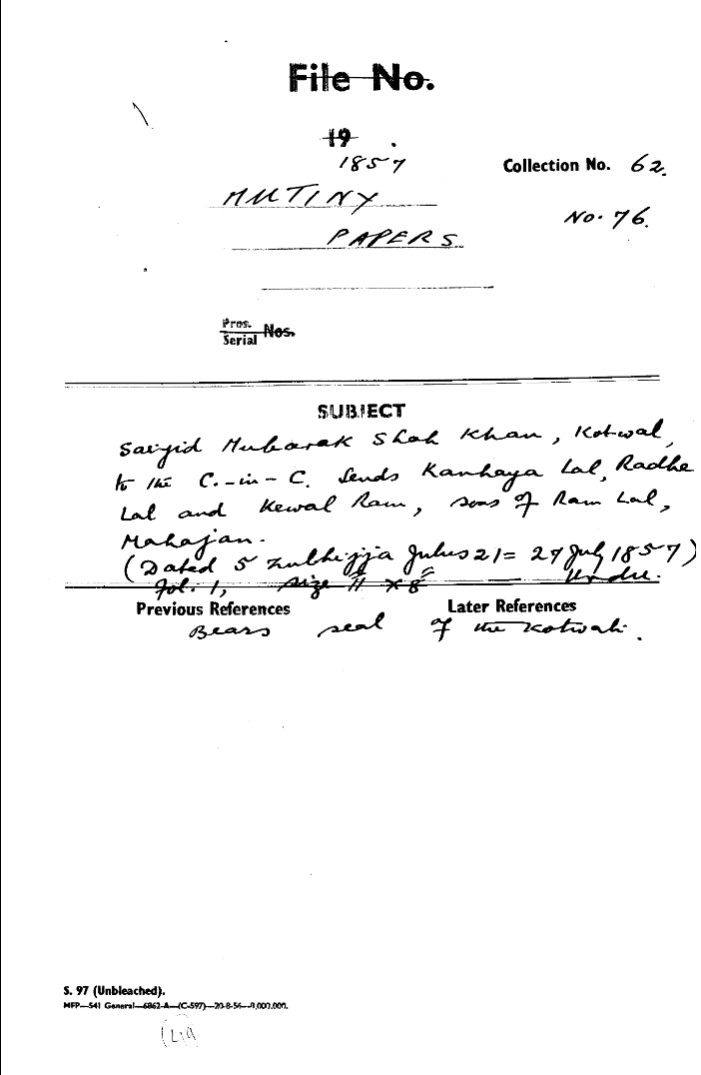 File No.
19 .
1857
Collection No. 62.
MUTINY
No. 76.
PAPERS
Pros.
Serial Nos.
SUBJECT
Saiyid Mubarak Shah Khan, Kotwal,
to the C.-in-C. Sends Kanhaya Lal, Radhe
Lal and Kewal Ram, sons of Ram Lal,
Mahajan.
(Dated 5 Zulhijja Julus 21 = 27 July 1857)
Fol. 1, size 11" x 8" Urdu.
Previous References Later References
Bears seal of the Kotwali.
S. 97 (Unbleached).
MFP—541 General—6862-A—(C-597)—20-8-56—